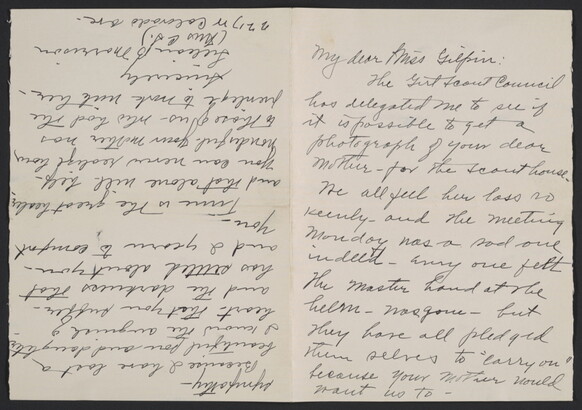 My dear Miss Gilpin:
The Girl Scout Council
has delegated me to see if
it is possible to get a
photograph of your dear
Mother - for the Scout house.
We all feel her loss so
keenly - and the meeting
Monday was a sad one
indeed - Every one felt
the master hand at the
helm - was gone - but
they have all pledged
them selves to "carry on"
because your Mother would
want us to -
sympathy -
Because I have lost a
beautiful son and daughter
I know the anguish of
heart that you suffer -
and the darkness that
has settled about you -
and I yearn to comfort
you -
Time is the great healer
and that alone will help -
You can never realize how
wonderful your mother was
to those of us - who had the
privilege to work with her -
Sincerely
Lillian B Morrison
(Mrs C.S.)
2217 N Colorado Ave.